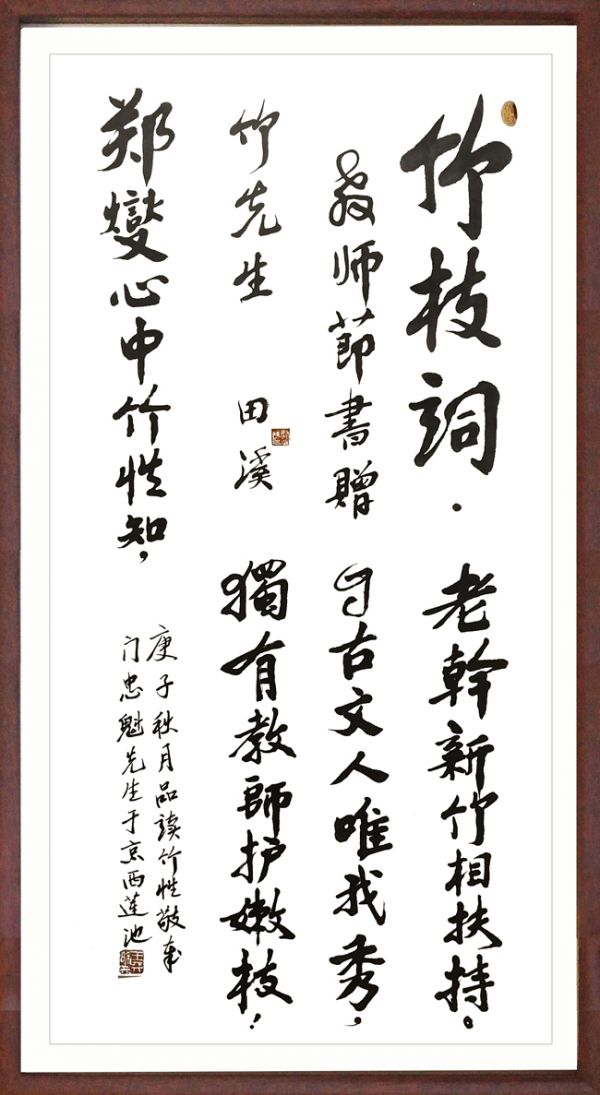 竹枝詞·
教师節書贈
竹先生 田溪
郑燮心中竹性知，
老幹新竹相扶持。
自古文人唯我秀，
獨有教師护嫩枝！
庚子秋月品读竹性敬奉
门忠魁先生于京西莲池